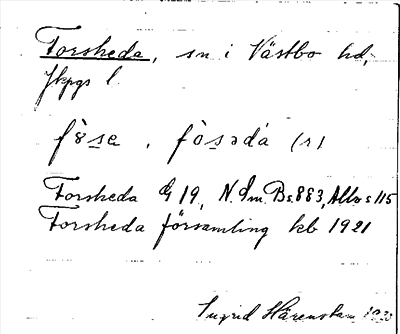 Forsheda, sn i Västbo hd,
Jkpgs l.
fò̀se, fòsədá (s)
Forsheda G 19, N. Sm. Bs. 883, Allvs 115
Forsheda församling kb 1921
Ingrid Härenstam 1930